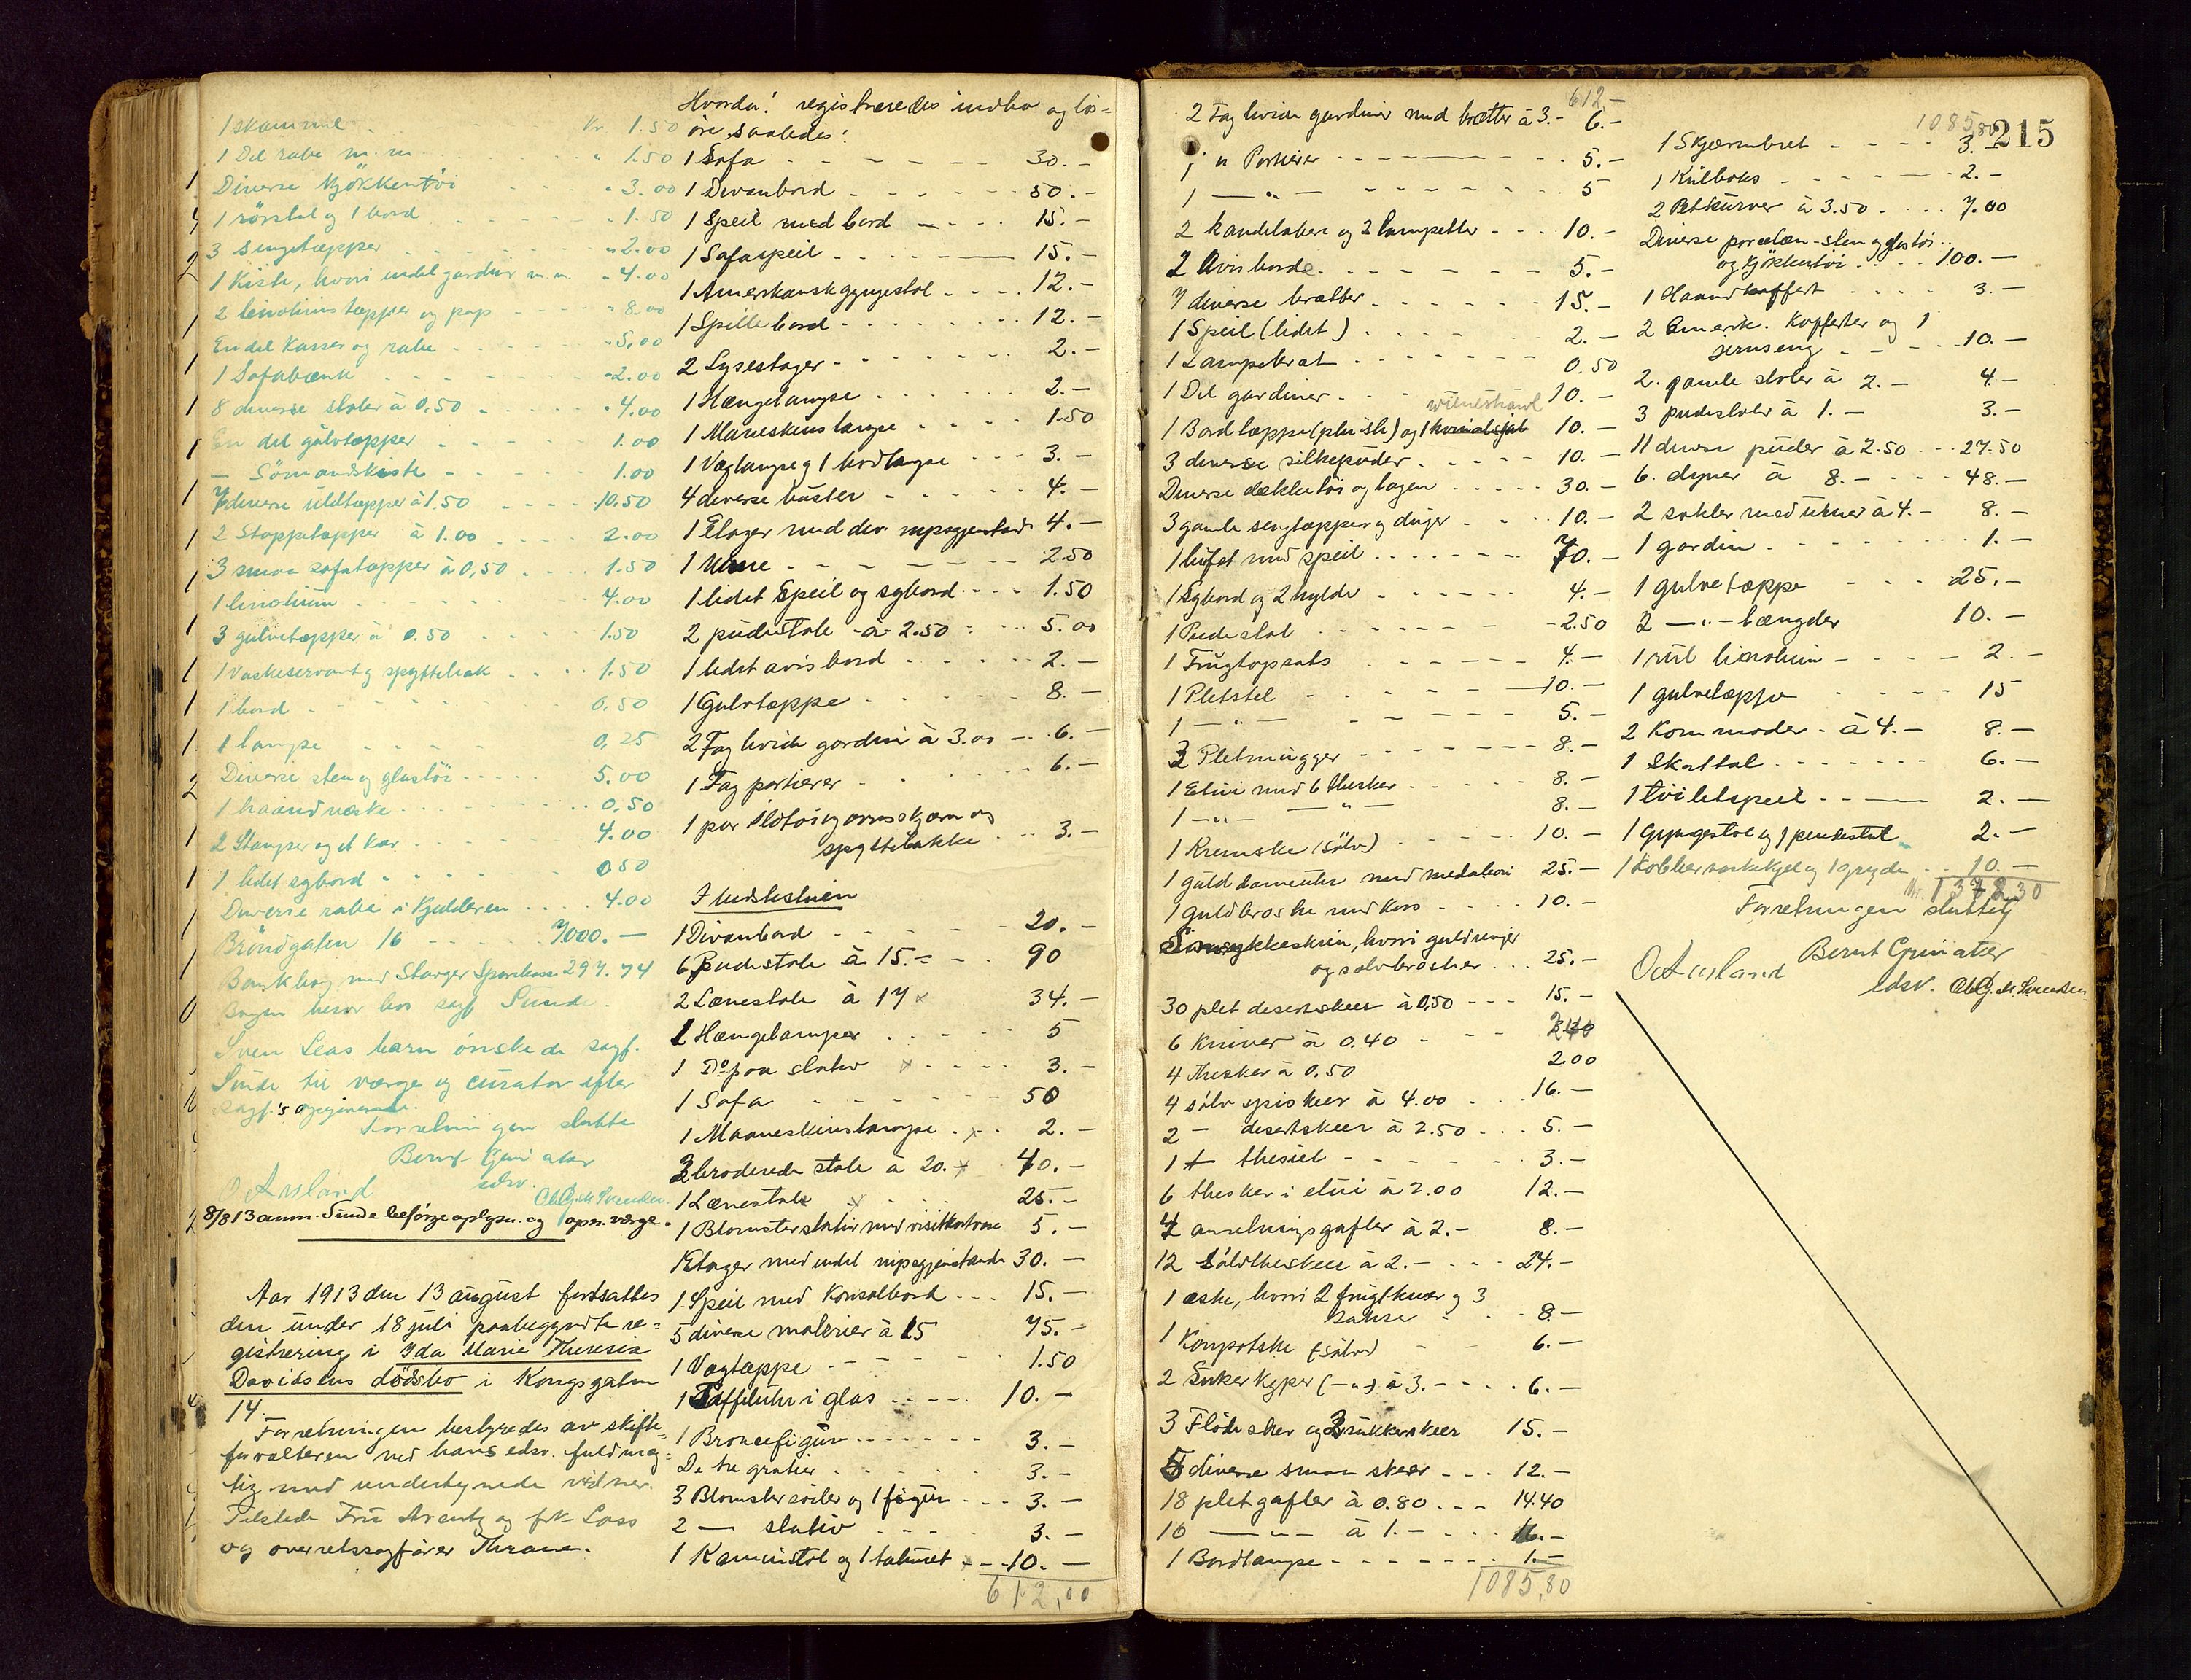 1 skammel . Kr. 1.50
1 Del rabe m.m. " 1.50
Diverse Kjøkkentøi " 3.00
1 rørstol og 1 bord " 1.50
3 sengetæpper "2.00
1 Kiste, hvori endel gardiner m.m. "4.00
2 linoliums tæpper og pap " 8.00
En del Kasser og rabe "5.00
1 Sofabænk "2.00
8 diverse stoler à 0.50 "4.00
En del gulvtæpper 1.00
— Sømandskiste 1.00
7 diverse uldtæpper à 1.50 10.50
2 Stoppetæpper à 1.00 2.00
3 smaa sofatæpper à 0,50 1.50
1 linolium 4.00
3 gulvetæpper à 0.50 1.50
1 Vaskeservant og spyttebak 1.50
1 bord 0.50
1 lampe 0,25
Diverse sten og glastøi 5.00
1 haandvæske 0.50
2 Stamper og et Kar 4.00
1 lidet sybord 0.50
Diverse rabe i Kjelderen 4.00
Brøndgaten 16 7000.—
Bankbog med Stavger Sparekasse 297.74
bogen beror hos sagf. Sunde.
Sven Leas barn ønskede sagf.
Sunde til værge og curator efter
sagf.'s opgivende.
Forretningen sluttet
Bernt Grini aker
edsv.
O Ausland Chr. G. M. Svendsen.
8/8 13 anm. Sunde besørge oplysn. og opn. værge.
Aar 1913 den 13 august fortsattes
den under 18 juli paabegyndte re=
gistrering i Ida Marie Theresia
Davidsens dødsbo i Kongsgaten
14.
Forretningen bestyredes av skifte=
forvalteren ved hans edsv. fuldmæg=
tig med undertegnede vidner.
Tilstede Fru Arentz og frk. Loss
og overretssagfører Thrane.
Hvorda! registreredes indbo og løs=
øre saaledes:
1 Sofa 30.—
1 Divanbord 50.—
1 Speil med bord 15.—
1 Sofaspeil 15.—
1 Amerikansk gyngestol 12.—
1 Spillebord 12.—
2 Lysestager 2.—
1 Hængelampe 2.—
1 Maaneskinslampe 1.50
1 Væglampe og 1 bordlampe 3.—
4 diverse buster 4.—
1 Etager med div. nipsgjenstande 4.—
1 Urne 2.50
1 lidet Speil og sybord 1.50
2 pudestole à 2.50 5.00
1 lidet avisbord 2.—
1 Gulvtæppe 8.—
2 Fag hvide gardiner à 3.00 6.—
1 Fag portierer 6.—
1 par ildtøi og ovnsskjærm og
spyttebakke 3.—
I Lidlestuen
1 Divanbord 20.—
6 Pudestole à 15.— 90
2 Lænestole à 17 × 34.—
2 Hængelamper 5
1 Do paa stativ × 3.—
1 Sofa 50
1 Maaneskinslampe × 2.—
2 broderede stole à 20. × 40.—
1 Lænestole × 25.—
1 Blomsterstativ med visitkortvase 5.—
1 Etager med endel nipsgjenstande 30.—
1 Speil med Konsolbord 15.—
5 diverse malerier à 15 75.—
1 Vægtæppe 1.50
1 Taffeluhr i glas 10.—
1 Broncefigur 3.—
De tre gratier 3.—
3 Blomstersøiler og 1 figur 3.—
2 — stativ 3.—
1 Kaminstol og 1 taburet × 10.—
612,00
612.—
2 Fag hvide gardiner med brætter à 3.— 6.—
1 " Portierer 5.—
1 — " — 5
2 Kandelabere og 2 lampetter 10.—
2 Avisborde 5.—
7 diverse brætter 15.—
1 Speil (lidet) 2.—
1 Lampebræt 0.50
1 Del gardiner 10.—
wienershawl
1 Bordtæppe (plüsh) og 1 10.—
3 diverse silkepuder 10.—
Diverse dækketøi og lagen 30.—
3 gamle sengtæpper og duger 10.—
1 bufet med speil 70.—
1 Sybord og 2 hylder 4.—
1 Pudestol 2.50
1 Frugtopsats 4.—
1 Pletstel 10.—
1 — " — 5.—
2 Pletmugger 8.—
1 Etui med 6 thesker 8.—
1 — " — — " — 8.—
1 Kremske (sølv) 10.—
1 guld dameuhr med medalion 25.—
1 guldbroche med Kors 10.—
Smykkeskrin, hvori guldringer
og sølvbrosher 25.—
30 plet desertskeer à 0,50 15.—
6 Kniver à 0.40 2.40
4 Thesker à 0.50 2.00
4 sølv spiskeer à 4.00 16.—
2 — desertskeer à 2.50 5.—
1 + thesiet 3.—
6 thesker i etui à 2.00 12.—
4 anretningsgafler à 2.— 8.—
12 Sølvtheskeer à 2.— 24.—
1 æske, hvori 2 frugtkniver og 3
sakse 8.—
1 Kompotske (sølv) 6.—
2 Sukkerklyper (—"—) à 3.— 6.—
3 Flødeskeer og 3 sukkerskeer 15.—
5 diverse smaa skeer 12.—
18 pletgafler à 0.80 14.40
16 — " — à 1.— 16.—
1 Bordlampe 1.—
1085,80
215
1085,80
1 Skjærmbret 3.—
1 Kulboks 2.—
2 Pletkurver à 3.50 7.00
Diverse porcelæn-sten og glastøi
og kjøkkentøi 100.—
1 Haandkoffert 3.—
2 Amerik. Kofferter og 1
jernseng 10.—
2. gamle stoler à 2.— 4.—
3 pudestoler à 1.— 3.—
11 diverse puder à 2.50 27.50
6. dyner à 8.— 48.—
2 sokler med urner à 4.— 8.—
1 gardin 1.—
1 gulvetæppe 25.—
2 — " — længder 10.—
1 rul linolium 2.—
1 gulvetæppe 15
2 Kommoder à 4.— 8.—
1 Skattol 6.—
1 toiletspeil 2.—
1 Gyngestol og 1 pudestol 2.—
1 Kobbervaskekjel og 1 gryde 10.—
Kr. 1378.30
Forretningen sluttet
Bernt Grini aker
O Ausland edsv. Chr. G. M. Svendsen